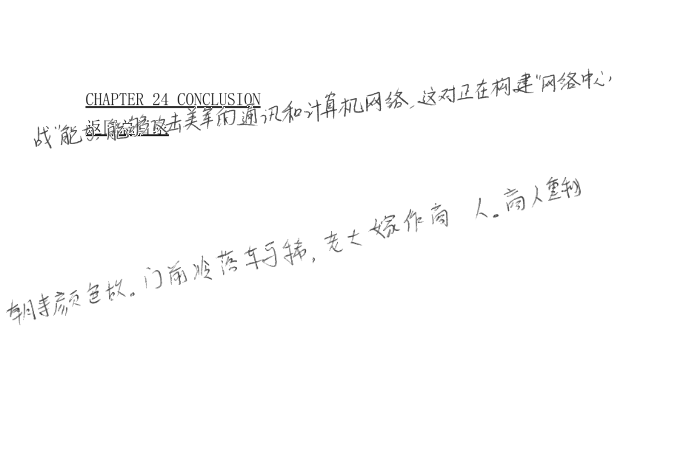 CHAPTER 24 CONCLUSION
战"能够攻击美军的通讯和计算机网络、这对正在构建"网络中心
朝来颜色故。门前冷落车马稀,老大嫁作商人。商人重利